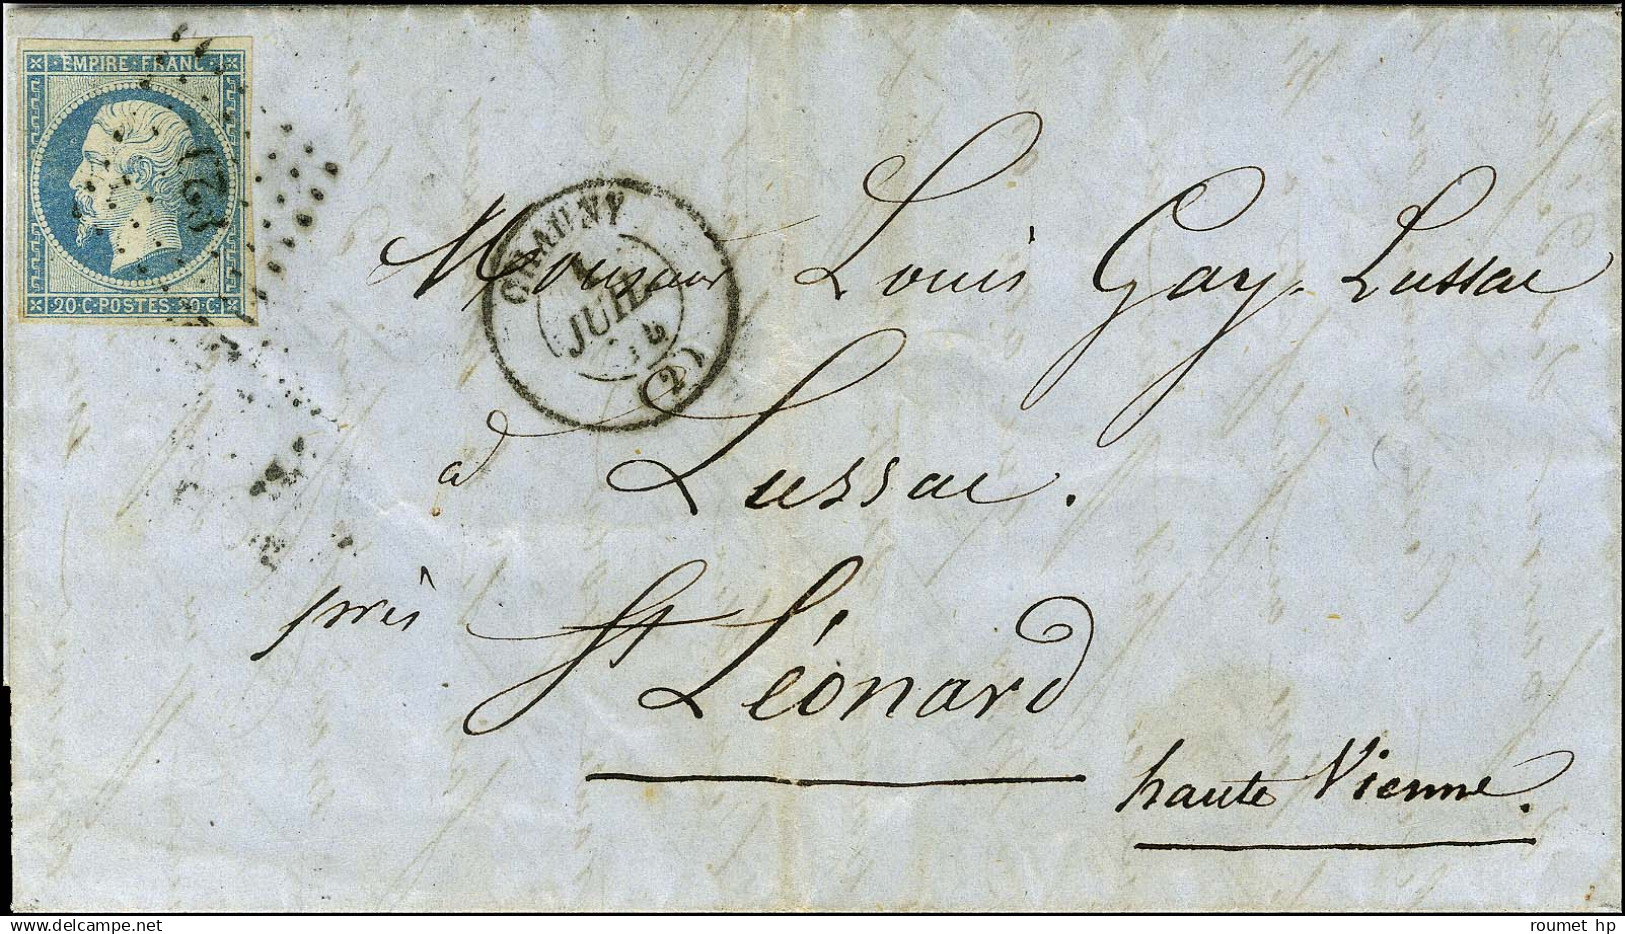 EMPIRE · FRANC ·
20 · C · POSTES · 20 · C ·
CHAUNY
JUIL
(2)
Monsieur Louis Gay-Lussac
à Lussac.
près St Léonard
haute Vienne.
roumet hp